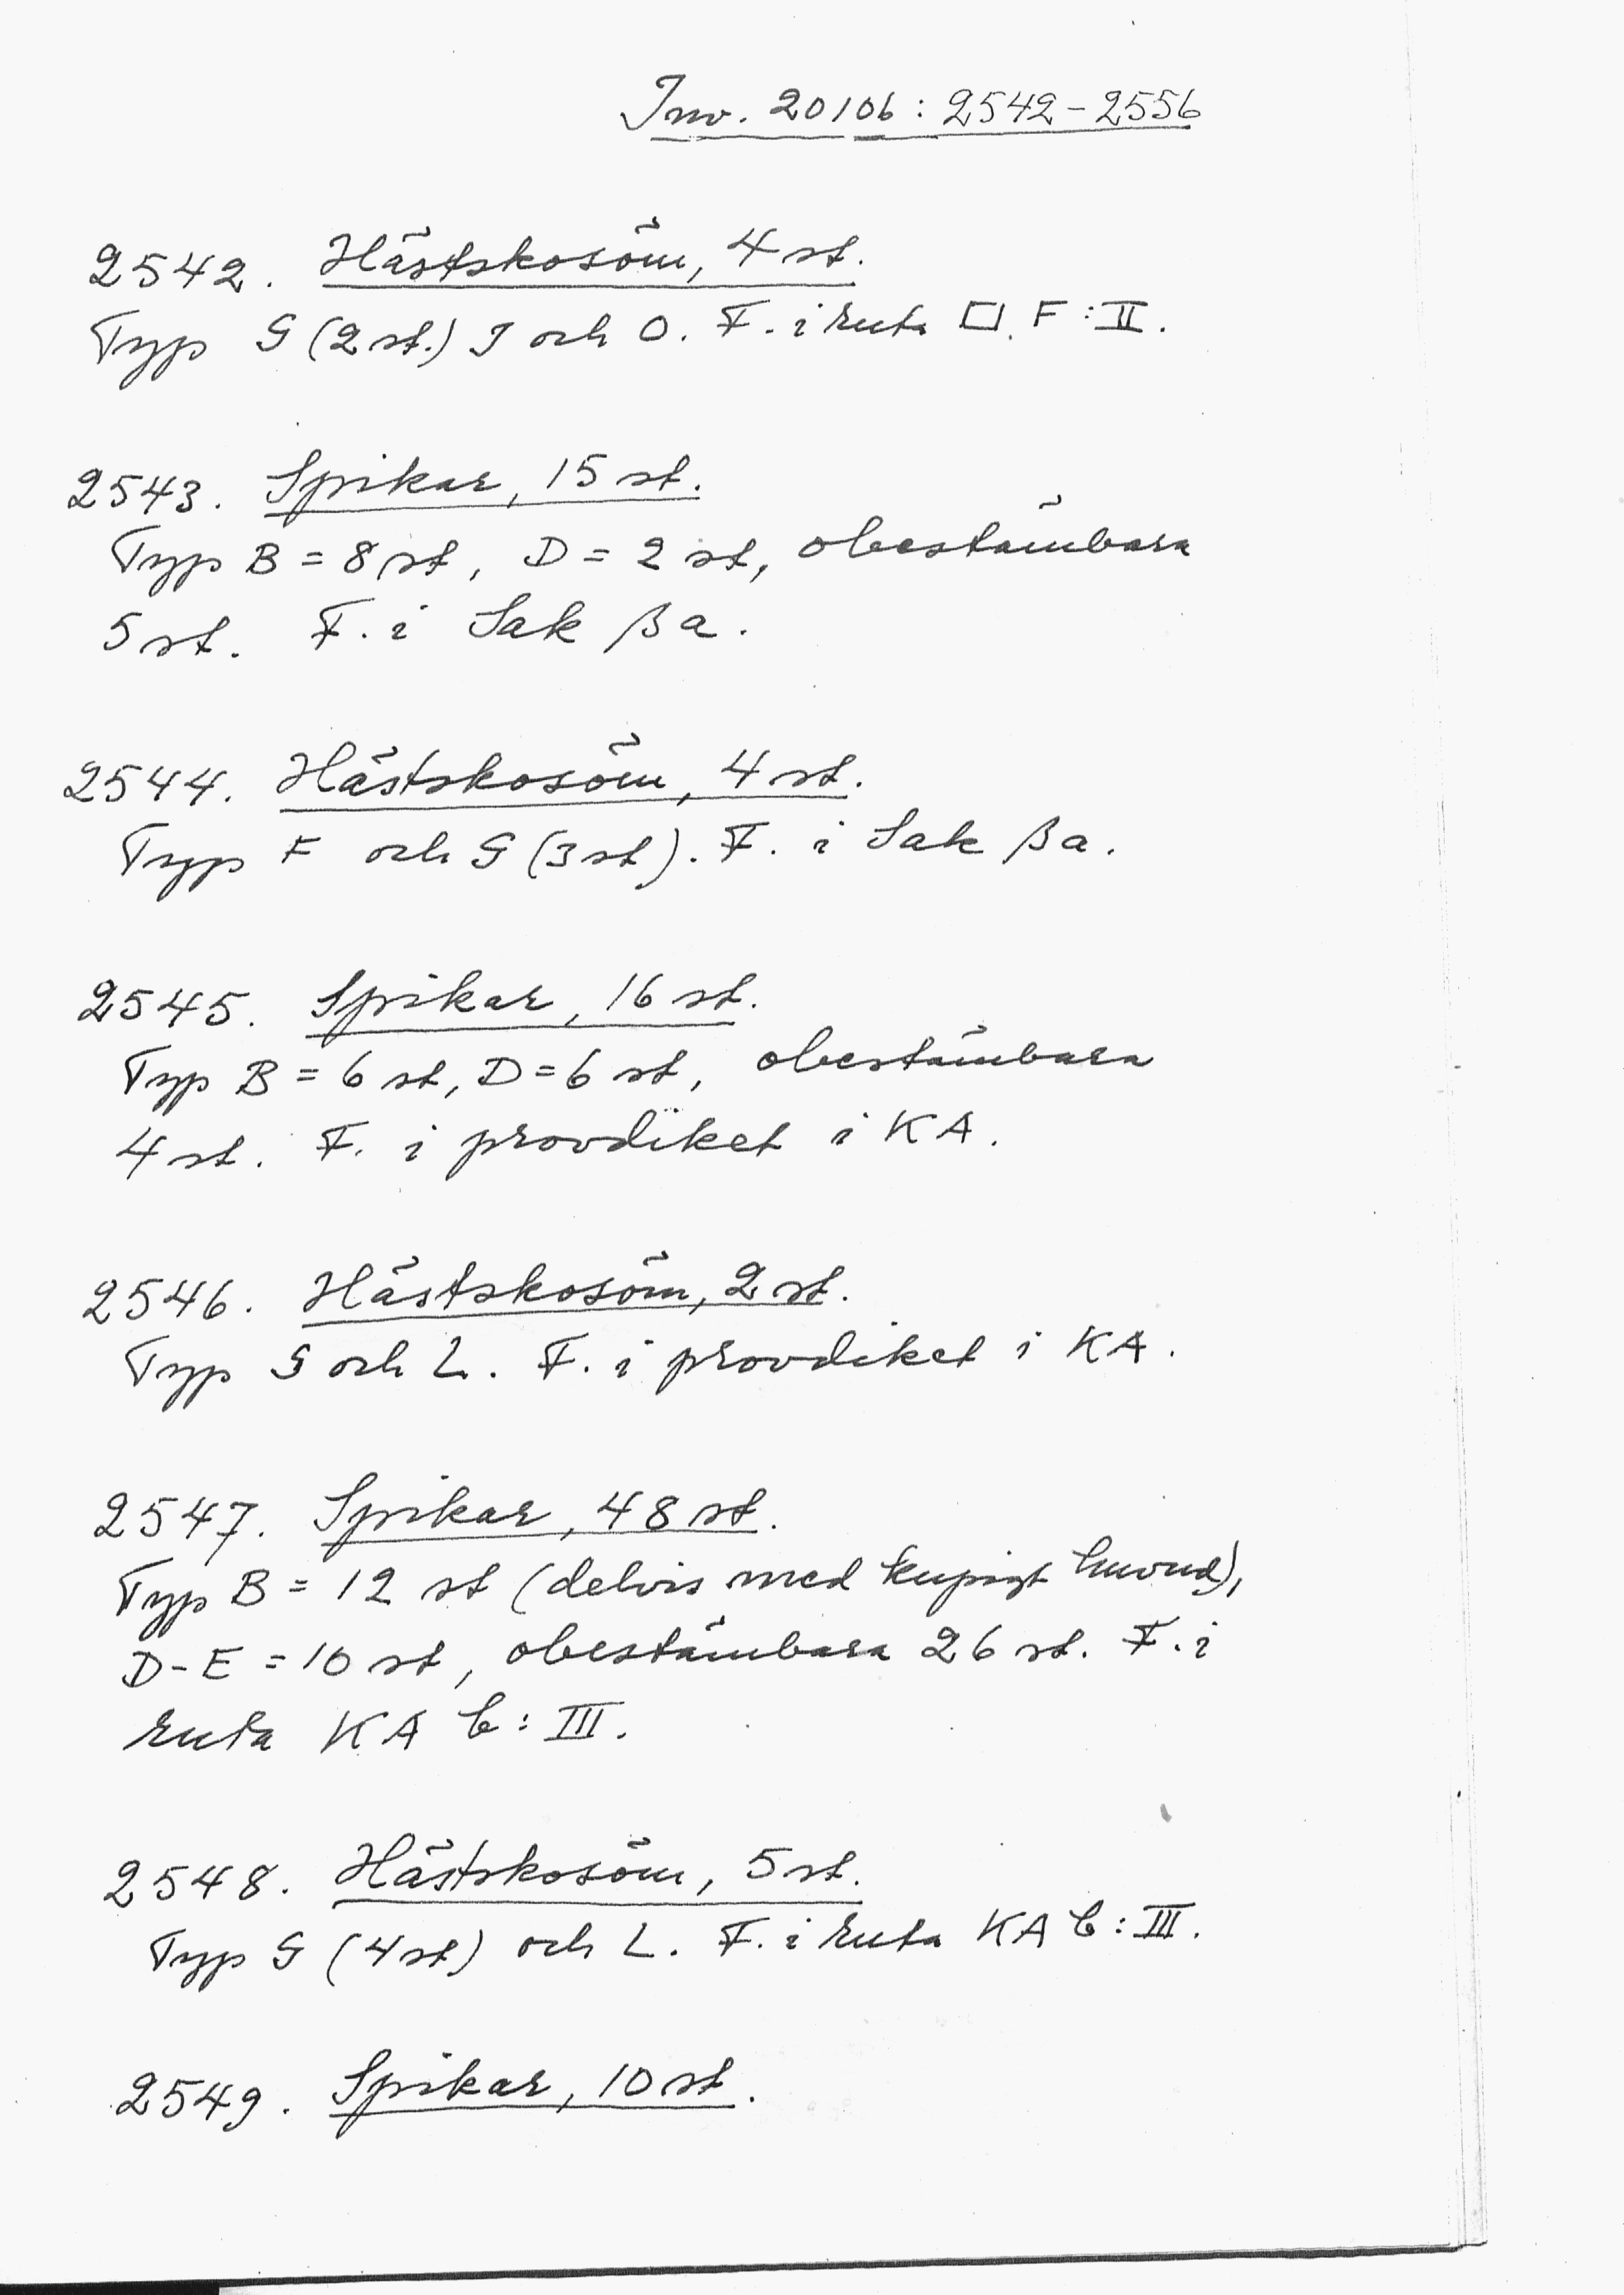 Inv. 20106 : 2542-2556
2542. Hästskosöm, 4 st.
Typ G (2 st.) I och O. F. i ruta □. F : II.
2543. Spikar, 15 st.
Typ B = 8 st, D = 2 st, obestämbara
5 st. F. i Sak βa.
2544. Hästskosöm, 4 st.
Typ F och G (3 st). F. i Sak βa.
2545. Spikar, 16 st.
Typ B = 6 st, D = 6 st, obestämbara
4 st. F. i provdiket i KA.
2546. Hästskosöm, 2 st.
Typ G och L. F. i provdiket i KA.
2547. Spikar, 48 st.
Typ B = 12 st (delvis med kupigt huvud),
D-E = 10 st, obestämbara 26 st. F. i
ruta KA C : III.
2548. Hästskosöm, 5 st.
Typ G (4 st) och L. F. i ruta KA C : III.
2549. Spikar, 10 st.